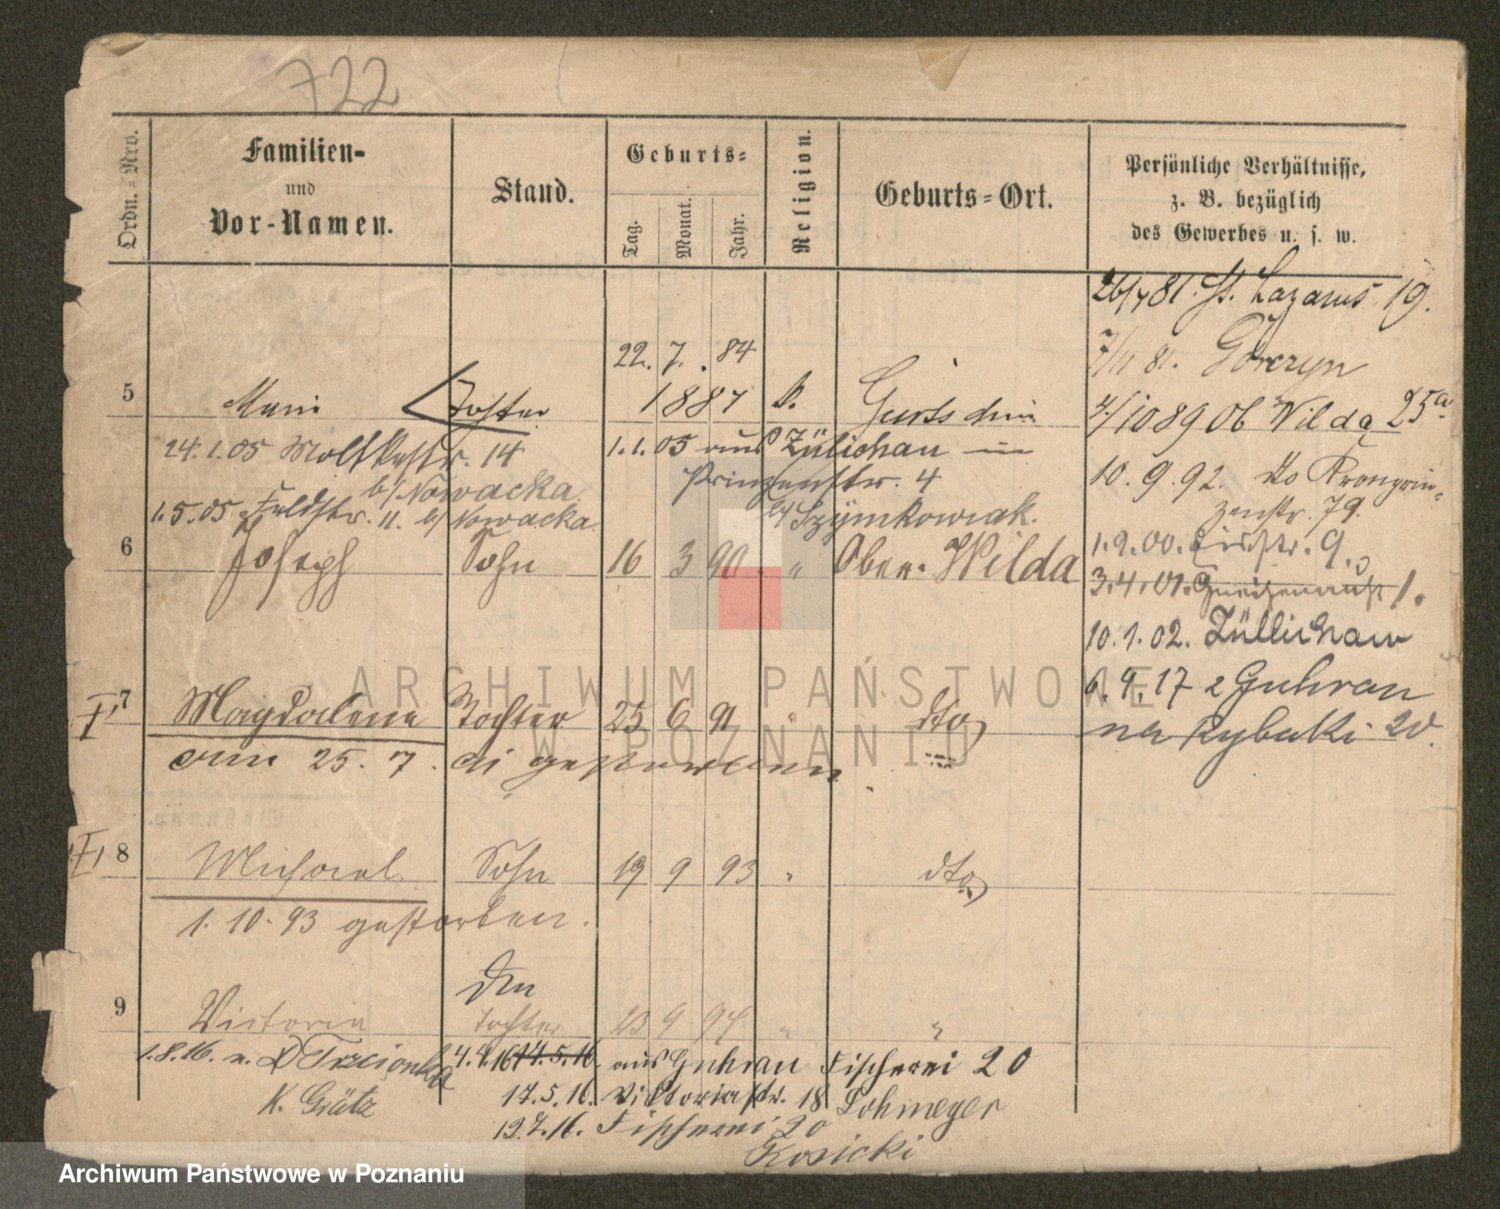 722
Ordn.-Nro.
Familien-
und
Vor-Namen.
Stand.
Geburts-
Tag.
Monat.
Jahr.
Religion.
Geburts-Ort.
Persönliche Verhältnisse,
z. B. bezüglich
des Gewerbes u. s. w.
26/4 81. St. Lazarus 19.
7/11 81. Gorczyn
22. 7. 84
5 Marie Tochter 1887 k. Gurtschin
4/10 89 Ob Wilda 25a
24.1.05 Moltkestr. 14
b/ Nowacka.
1.1.05 aus Züllichau
Prinzenstr. 4
b/ Szymkowiak.
10.9.92. do Kronprin-
zenstr. 79.
1.5.05. Feldstr. 11. b/ Nowacka.
6 Joseph Sohn 16 3 90 " Ober-Wilda
1.9.00. 9.
3.4.01. Gneisenaustr 1.
10.1.02. Züllichau
6.9.17 z Guhrau
na Rybaki 20.
7 Magdalene Tochter 25 6 91 " dto
am 25. 7. gestorben
8 Michael Sohn 19 9 93 " dto
1. 10. 93 gestorben.
9 Victoria Tochter 23 9 94 " "
1.8.16. n. Trzcionka
K. Grätz
4.4.16 14.5.16. aus Guhrau Fischerei 20
17.5.16. Viktoriastr. 18 Lohmeyer
12.7.16. Fischerei 20
Kosicki
ARCHIWUM PAŃSTWOWE
W POZNANIU
Archiwum Państwowe w Poznaniu